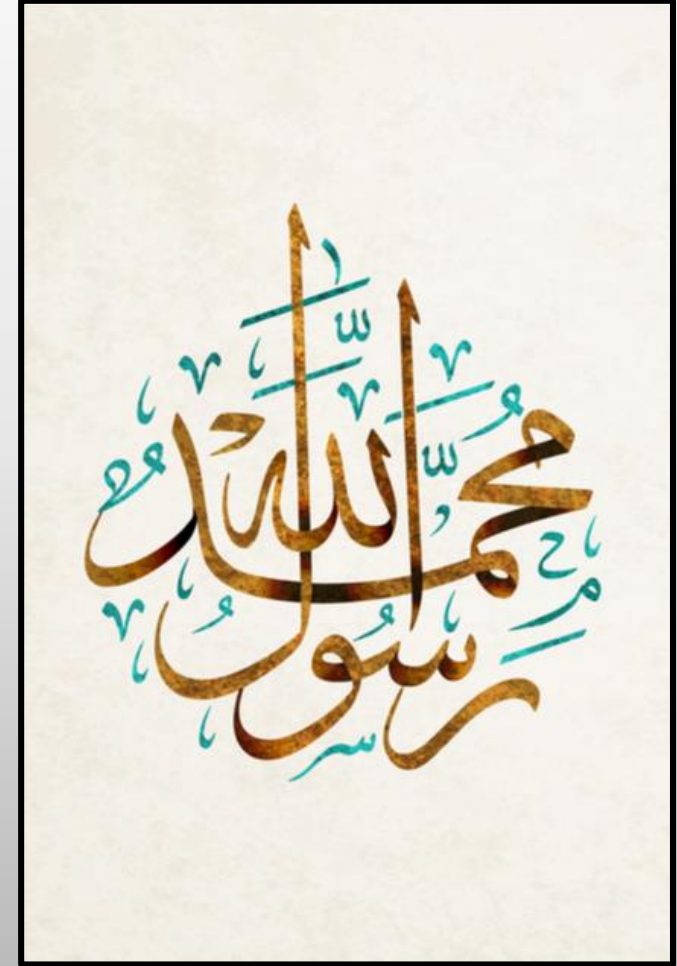 مُحَمَّدٌ رَسُولُ اللّٰه